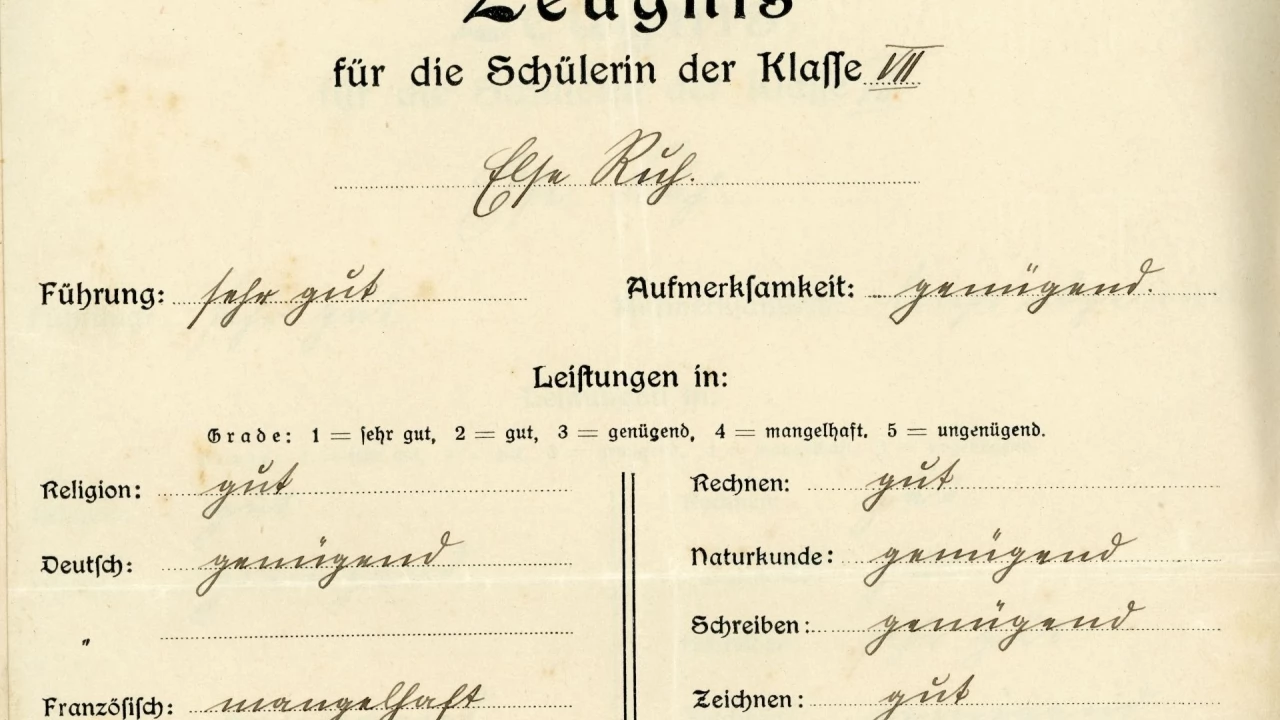 Zeugnis
für die Schülerin der Klaſſe VII
Else Ruf.
Führung: sehr gut
Aufmerkſamkeit: genügend.
Leiſtungen in:
Grade: 1 = ſehr gut, 2 = gut, 3 = genügend, 4 = mangelhaft. 5 = ungenügend.
Religion: gut
Deutſch: genügend
"
Franzöſiſch: mangelhaft
Rechnen: gut
Naturkunde: genügend
Schreiben: genügend
Zeichnen: gut